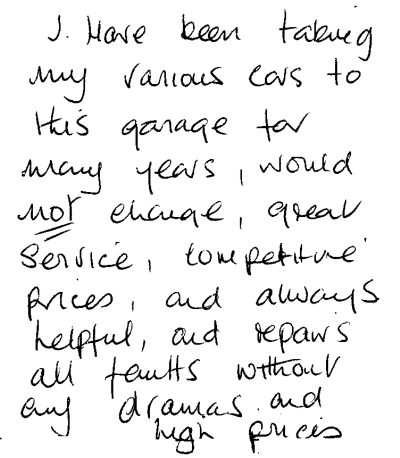 I. Have been taking
my various cars to
this garage for
many years, would
not change, great
service, competitive
prices, and always
helpful, and repairs
all faults without
any dramas and
high prices